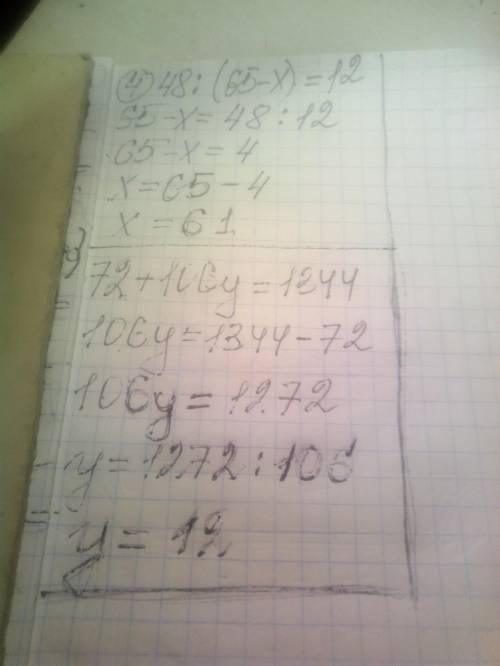 4) 48 : (65-x) = 12
65-x = 48 : 12
65-x = 4
x = 65 - 4
x = 61
72 + 106y = 1344
106y = 1344 - 72
106y = 1272
y = 1272 : 106
y = 12